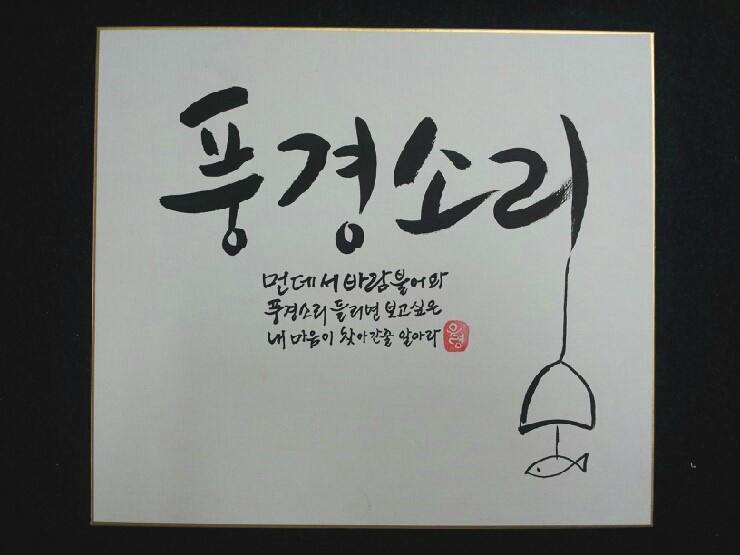 풍경소리
먼데서 바람 불어와
풍경소리 들리면 보고싶은
내 마음이 찾아간줄 알아라